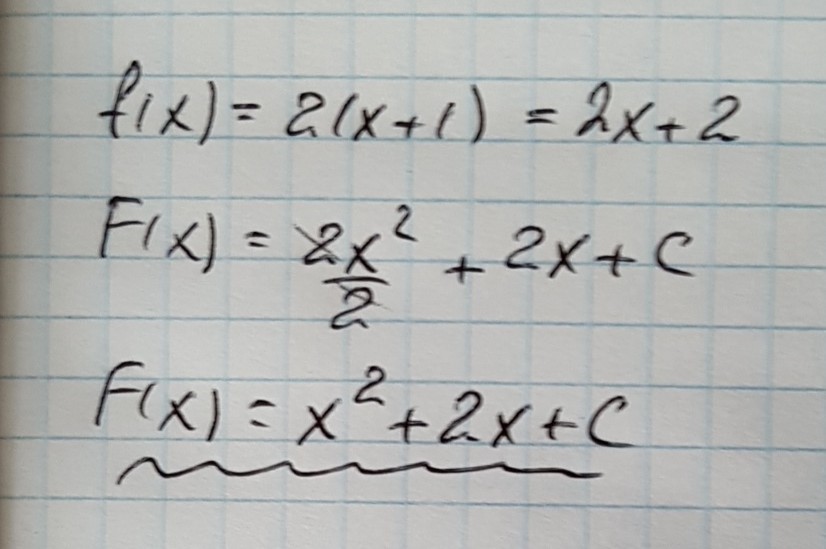 f(x) = 2(x+1) = 2x+2
F(x) = 2x²/2 + 2x + C
F(x) = x² + 2x + C